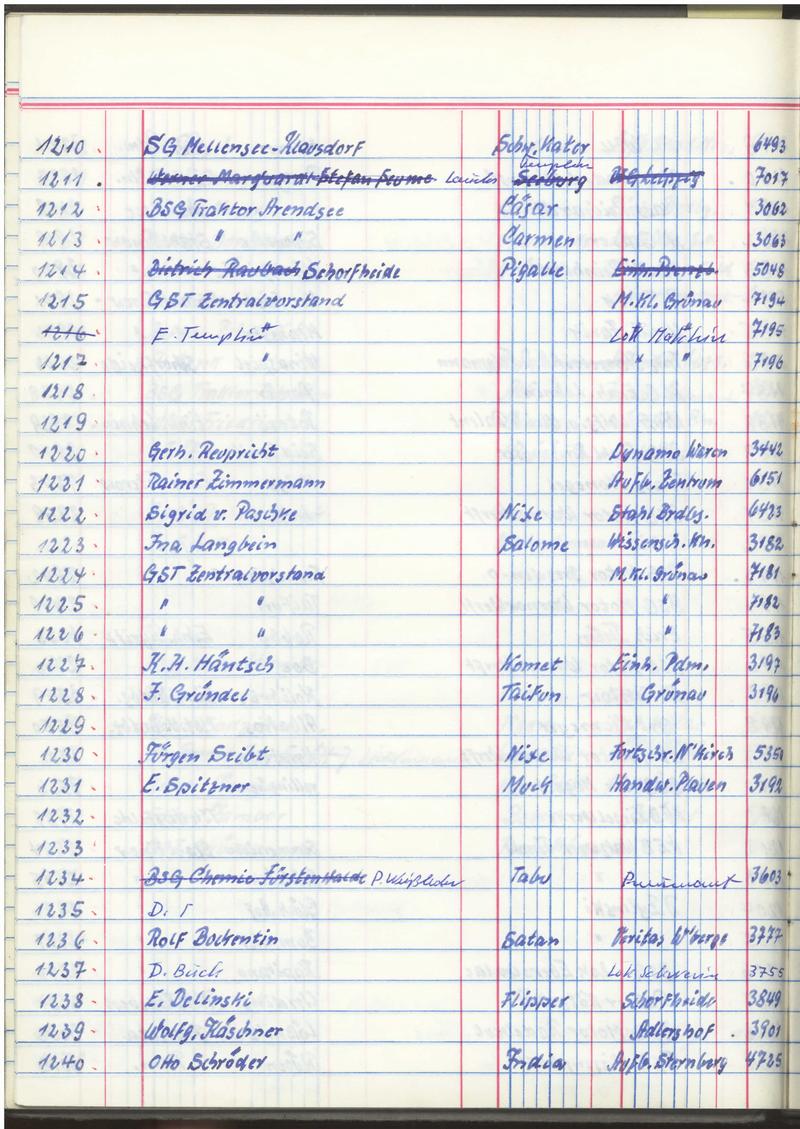 1210 SG Mellensee-Klausdorf Schw. Kater 6493
1211 Werner Marquardt Stefan Seume Templin Seeburg BSG Leipzig 7017
1212 BSG Traktor Arendsee Cäsar 3062
1213 " " Carmen 3063
1214 Dietrich Raubach Schorfheide Pigalle Einh. 5048
1215 GST Zentralvorstand M.Kl. Grünau 7194
1216 E. Templin " Lok Malchin 7195
1217 " " " 7196
1218
1219
1220 Gerh. Reupricht Dynamo Waren 3442
1221 Rainer Zimmermann Aufb. Zentrum 6151
1222 Sigrid v. Paschke Nixe Stahl Brdbg. 6423
1223 Ina Langbein Salome Wissensch. Kh. 3182
1224 GST Zentralvorstand M.Kl. Grünau 7181
1225 " " " 7182
1226 " " " 7183
1227 K.H. Häntsch Komet Einh. Pdm. 3197
1228 F. Gründel Taifun Grünau 3196
1229
1230 Jürgen Seibt Nixe Fortschr. N'kirch 5351
1231 E. Spitzner Muck Handw. Plaven 3192
1232
1233
1234 BSG Chemie Fürstenwalde P. Weißleder Tabu 3603
1235 D. T
1236 Rolf Bockentin Satan Veritas W'berge 3777
1237 D. Büch Lok Schwerin 3755
1238 E. Delinski Flipper Schorfheide 3849
1239 Wolfg. Käschner Adlershof 3901
1240 Otto Schröder India Aufb. Sternberg 4725